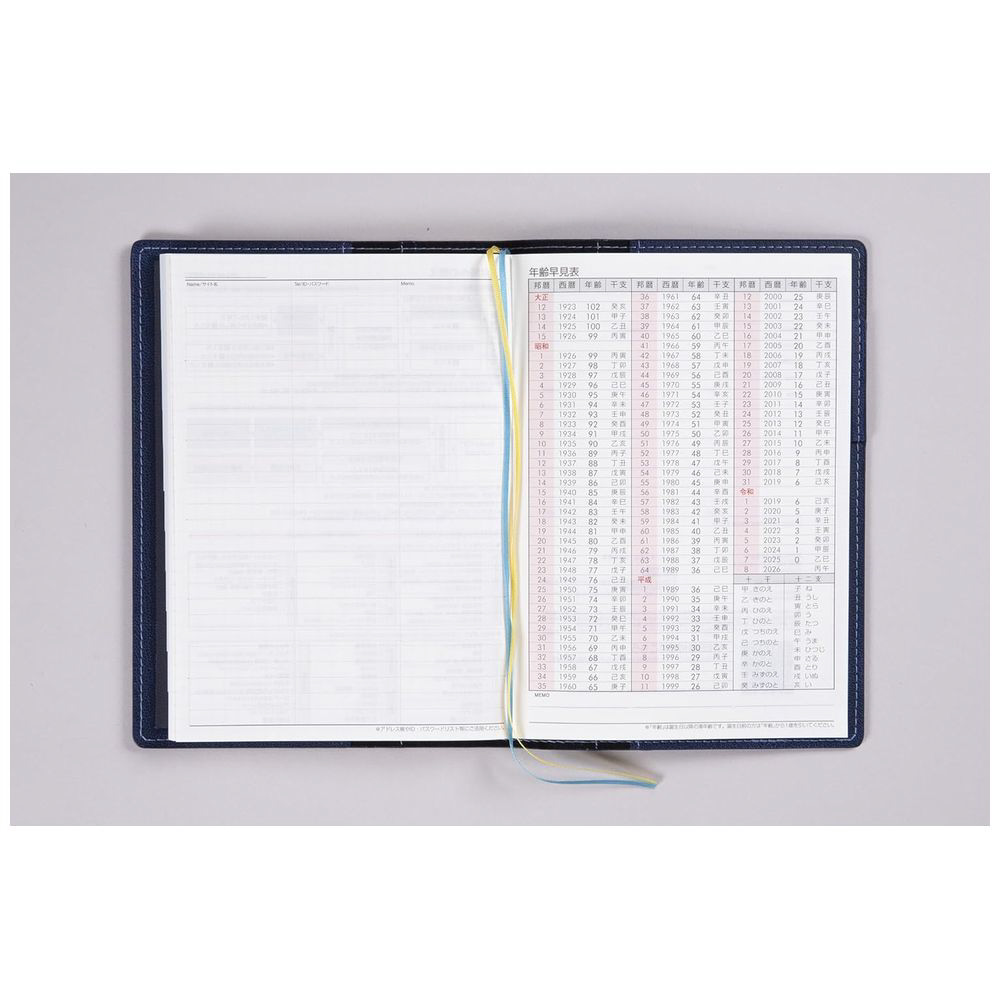 Name/サイト名 Tel/ID・パスワード Memo
※アドレス帳やID・パスワードリスト等にご活用ください。
年齢早見表
邦暦 西暦 年齢 干支
大正
12 1923 102 癸亥
13 1924 101 甲子
14 1925 100 乙丑
15 1926 99 丙寅
昭和
1 1926 99 丙寅
2 1927 98 丁卯
3 1928 97 戊辰
4 1929 96 己巳
5 1930 95 庚午
6 1931 94 辛未
7 1932 93 壬申
8 1933 92 癸酉
9 1934 91 甲戌
10 1935 90 乙亥
11 1936 89 丙子
12 1937 88 丁丑
13 1938 87 戊寅
14 1939 86 己卯
15 1940 85 庚辰
16 1941 84 辛巳
17 1942 83 壬午
18 1943 82 癸未
19 1944 81 甲申
20 1945 80 乙酉
21 1946 79 丙戌
22 1947 78 丁亥
23 1948 77 戊子
24 1949 76 己丑
25 1950 75 庚寅
26 1951 74 辛卯
27 1952 73 壬辰
28 1953 72 癸巳
29 1954 71 甲午
30 1955 70 乙未
31 1956 69 丙申
32 1957 68 丁酉
33 1958 67 戊戌
34 1959 66 己亥
35 1960 65 庚子
邦暦 西暦 年齢 干支
36 1961 64 辛丑
37 1962 63 壬寅
38 1963 62 癸卯
39 1964 61 甲辰
40 1965 60 乙巳
41 1966 59 丙午
42 1967 58 丁未
43 1968 57 戊申
44 1969 56 己酉
45 1970 55 庚戌
46 1971 54 辛亥
47 1972 53 壬子
48 1973 52 癸丑
49 1974 51 甲寅
50 1975 50 乙卯
51 1976 49 丙辰
52 1977 48 丁巳
53 1978 47 戊午
54 1979 46 己未
55 1980 45 庚申
56 1981 44 辛酉
57 1982 43 壬戌
58 1983 42 癸亥
59 1984 41 甲子
60 1985 40 乙丑
61 1986 39 丙寅
62 1987 38 丁卯
63 1988 37 戊辰
64 1989 36 己巳
平成
1 1989 36 己巳
2 1990 35 庚午
3 1991 34 辛未
4 1992 33 壬申
5 1993 32 癸酉
6 1994 31 甲戌
7 1995 30 乙亥
8 1996 29 丙子
9 1997 28 丁丑
10 1998 27 戊寅
11 1999 26 己卯
邦暦 西暦 年齢 干支
12 2000 25 庚辰
13 2001 24 辛巳
14 2002 23 壬午
15 2003 22 癸未
16 2004 21 甲申
17 2005 20 乙酉
18 2006 19 丙戌
19 2007 18 丁亥
20 2008 17 戊子
21 2009 16 己丑
22 2010 15 庚寅
23 2011 14 辛卯
24 2012 13 壬辰
25 2013 12 癸巳
26 2014 11 甲午
27 2015 10 乙未
28 2016 9 丙申
29 2017 8 丁酉
30 2018 7 戊戌
31 2019 6 己亥
令和
1 2019 6 己亥
2 2020 5 庚子
3 2021 4 辛丑
4 2022 3 壬寅
5 2023 2 癸卯
6 2024 1 甲辰
7 2025 0 乙巳
8 2026 丙午
十干
甲 きのえ
乙 きのと
丙 ひのえ
丁 ひのと
戊 つちのえ
己 つちのと
庚 かのえ
辛 かのと
壬 みずのえ
癸 みずのと
十二支
子 ね
丑 うし
寅 とら
卯 う
辰 たつ
巳 み
午 うま
未 ひつじ
申 さる
酉 とり
戌 いぬ
亥 い
MEMO
※「年齢」は誕生日以降の満年齢です。誕生日前の方は「年齢」から1歳を引いてください。